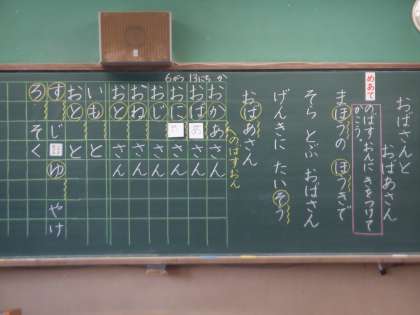 おばさんと
おばあさん
めあて
のばすおんに きをつけて
かこう。
まほうの ほうきで
そら とぶ おばさん
げんきに たいそう
おばあさん
のばすおん
6がつ 13にち か
おかあさん
おば さん
おに さん
おじ さん
おね さん
いも と
おと と
す じ ゆ やけ
ろ そく